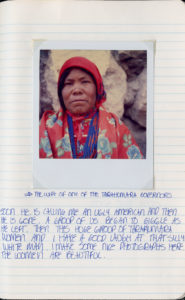 THE WIFE OF ONE OF THE TARAHUMARA GOVERNORS
SOON HE IS CALLING ME AN UGLY AMERICAN AND THEN
HE IS GONE. A GROUP OF US BEGAN TO GIGGLE AS
HE LEFT. THEN THIS WHOLE GROUP OF TARAHUMARA
WOMEN AND I HAVE A GOOD LAUGH AT THAT SILLY
WHITE MAN. I MAKE SOME NICE PHOTOGRAPHS HERE
THE WOMEN ARE BEAUTIFUL.